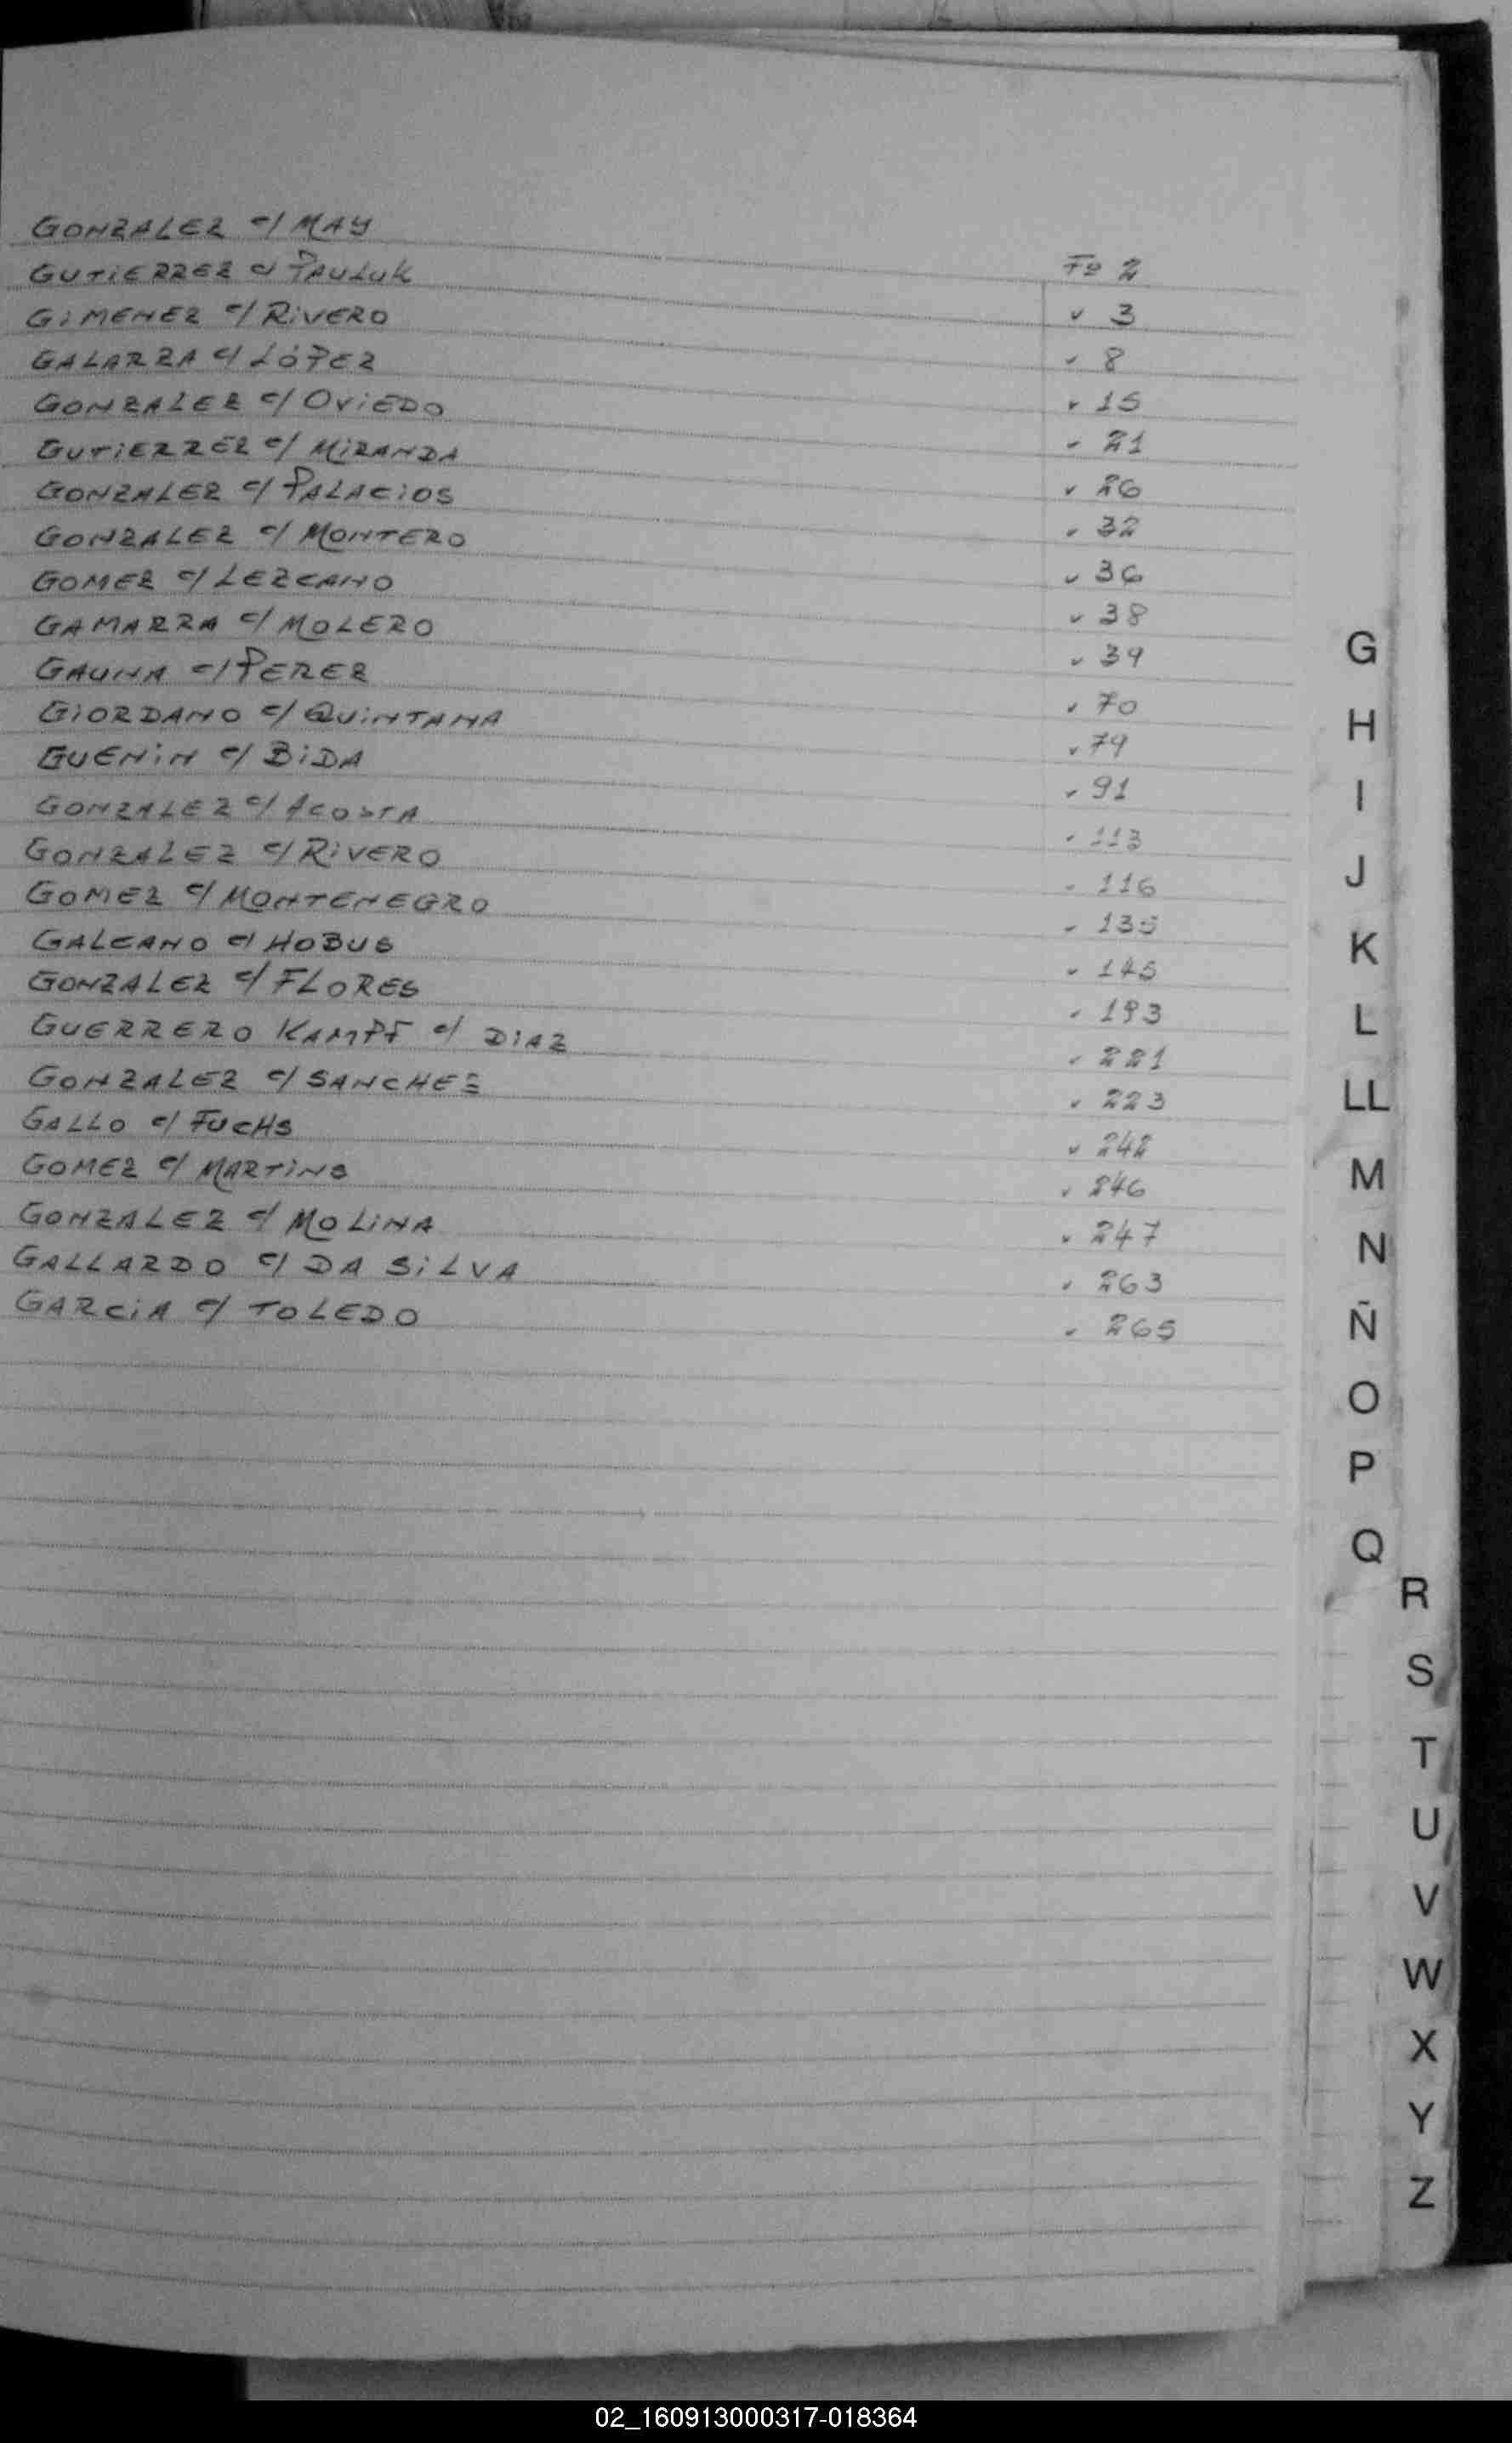 GONZALEZ c/ MAY Fº 2
GUTIERREZ c/ PAULUK " 3
GIMENEZ c/ RIVERO " 8
GALARZA c/ LÓPEZ " 15
GONZALEZ c/ OVIEDO " 21
GUTIERREZ c/ MIRANDA " 26
GONZALEZ c/ PALACIOS " 32
GONZALEZ c/ MONTERO " 36
GOMEZ c/ LEZCANO " 38
GAMARRA c/ MOLERO " 39
GAUNA c/ PEREZ " 70
GIORDANO c/ QUINTANA " 79
GUENIN c/ BIDA " 91
GONZALEZ c/ ACOSTA " 113
GONZALEZ c/ RIVERO " 116
GOMEZ c/ MONTENEGRO " 135
GALEANO c/ HOBUS " 145
GONZALEZ c/ FLORES " 193
GUERRERO KAMPF c/ DIAZ " 221
GONZALEZ c/ SANCHES " 223
GALLO c/ FUCHS " 242
GOMEZ c/ MARTINS " 246
GONZALEZ c/ MOLINA " 247
GALLARDO c/ DA SILVA " 263
GARCIA c/ TOLEDO " 265
G
H
I
J
K
L
LL
M
N
Ñ
O
P
Q
R
S
T
U
V
W
X
Y
Z
02_160913000317-018364